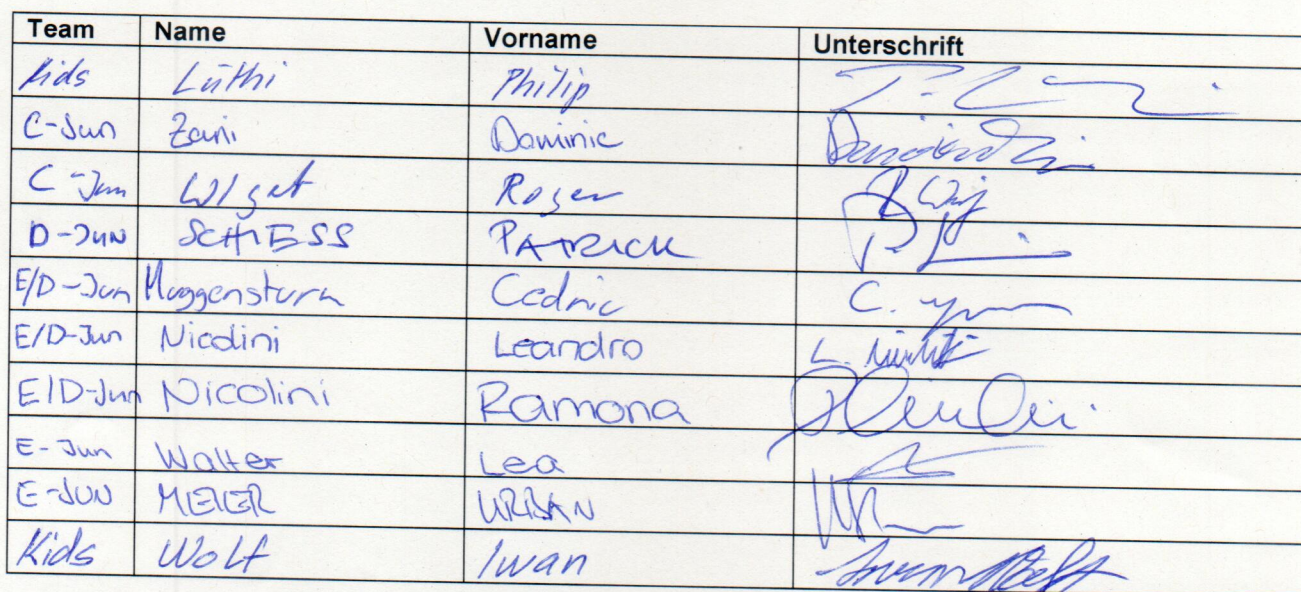 Team Name Vorname Unterschrift
Kids Lüthi Philip
C-Jun Zani Dominic
C-Jun Wiget Roger
D-JUN SCHIESS PATRICK
E/D-Jun Muggensturm Cedric C.
E/D-Jun Nicolini Leandro L.
E/D-Jun Nicolini Ramona
E-Jun Walter Lea
E-JUN MEIER URBAN
Kids Wolf Iwan Iwan Wolf